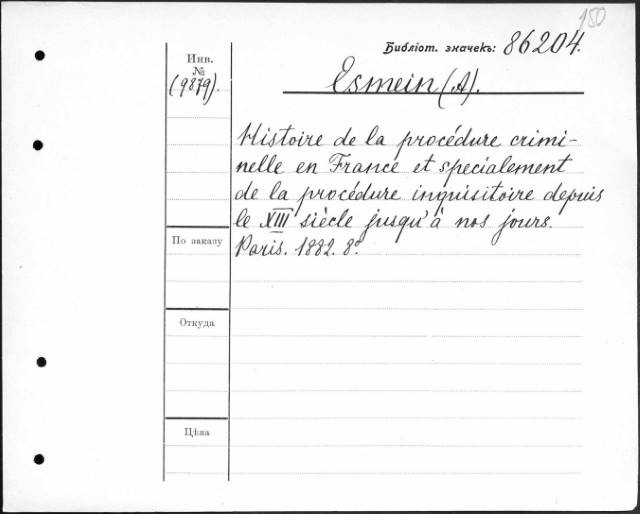 150
Библіот. значекъ: 86204.
Инв.
№
(9879).
Esmein (A).
Histoire de la procédure crimi-
nelle en France et specialement
de la procédure inquisitoire depuis
le XIII siècle jusqu'à nos jours.
Paris. 1882. 8º.
По заказу
Откуда
Цѣна